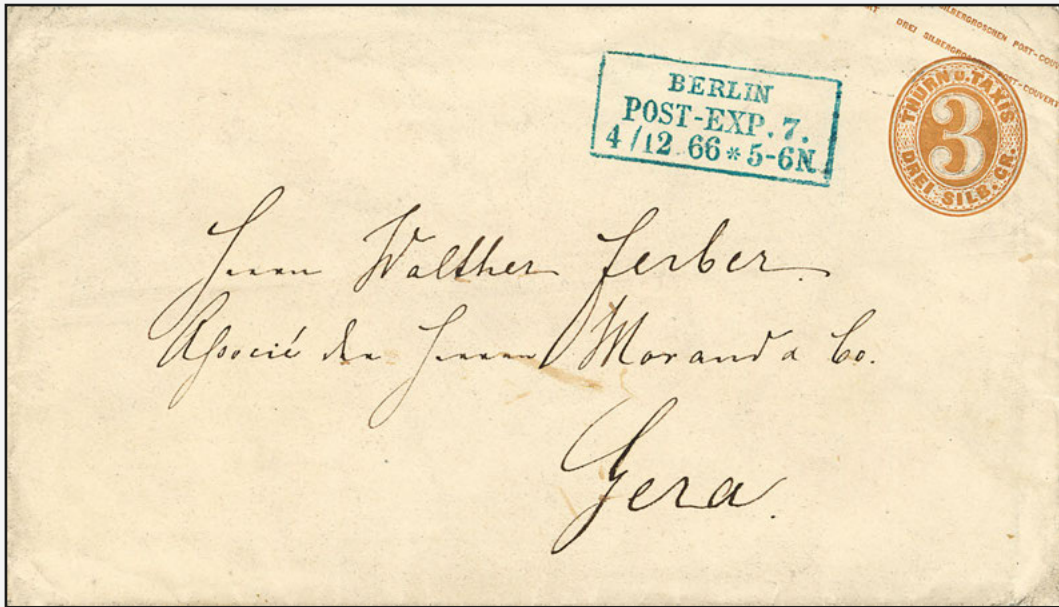 SILBERGROSCHEN POST-COUVERT
DREI SILBERGROSCHEN POST-COUVERT
BERLIN
POST-EXP. 7.
4/12 66 * 5-6N
THURN U. TAXIS
3
DREI SILB. GR.
Herrn Walther Ferber
Associé der Herren Morand & Co.
Gera.